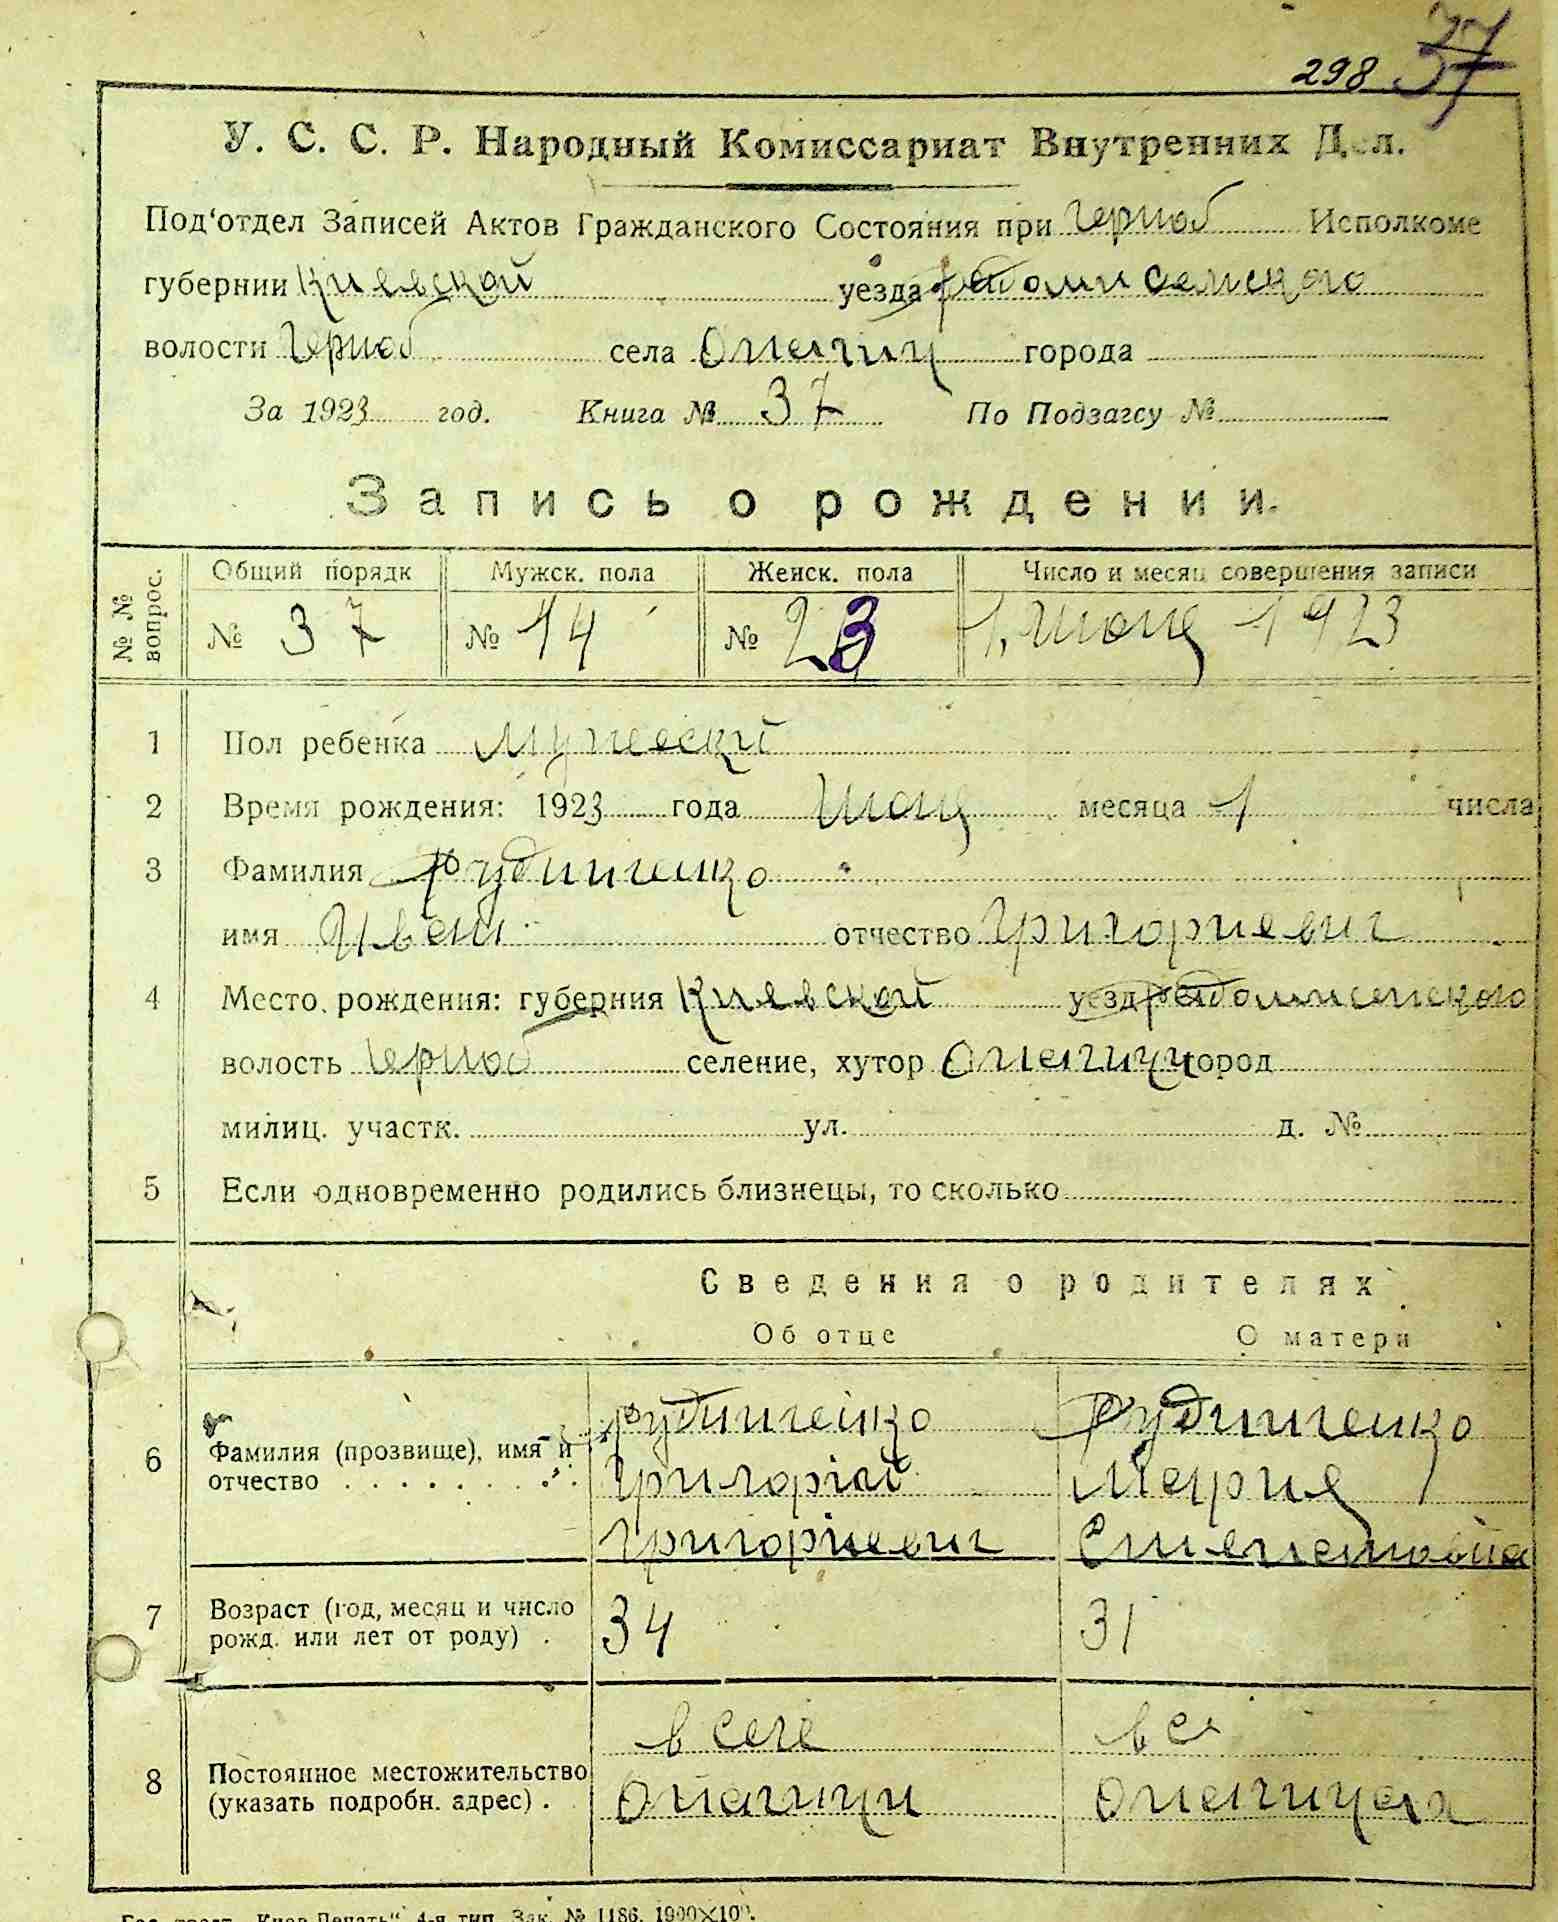 298 37
У. С. С. Р. Народный Комиссариат Внутренних Дел.
Под‘отдел Записей Актов Гражданского Состояния при Черноб Исполкоме
губернии Киевской уезда Радомисельского
волости Черноб села Опачич города
За 1923 год. Книга № 37 По Подзагсу №
Запись о рождении.
№ № вопрос.
Общий порядк Мужск. пола Женск. пола Число и месяц совершения записи
№ 37 № 14 № 23 1, 1923
1 Пол ребенка Мужеский
2 Время рождения: 1923 года месяца 1 числа
3 Фамилия Рудниченко
имя Иван отчество Григориевич
4 Место рождения: губерния Киевской уезд Радомисельского
волость Черноб селение, хутор Опачичи город
милиц. участк. ул. д. №
5 Если одновременно родились близнецы, то сколько
Сведения о родителях
Об отце О матери
Рудниченко Рудниченко
6 Фамилия (прозвище), имя и отчество Григорій Мария
Григоріевич
7 Возраст (год, месяц и число рожд. или лет от роду) . 34 31
в селе в се
8 Постоянное местожительство (указать подробн. адрес) . Опачичи
Гос. трест „Киев-Печать“ 4-я тип. Зак. № 1186.